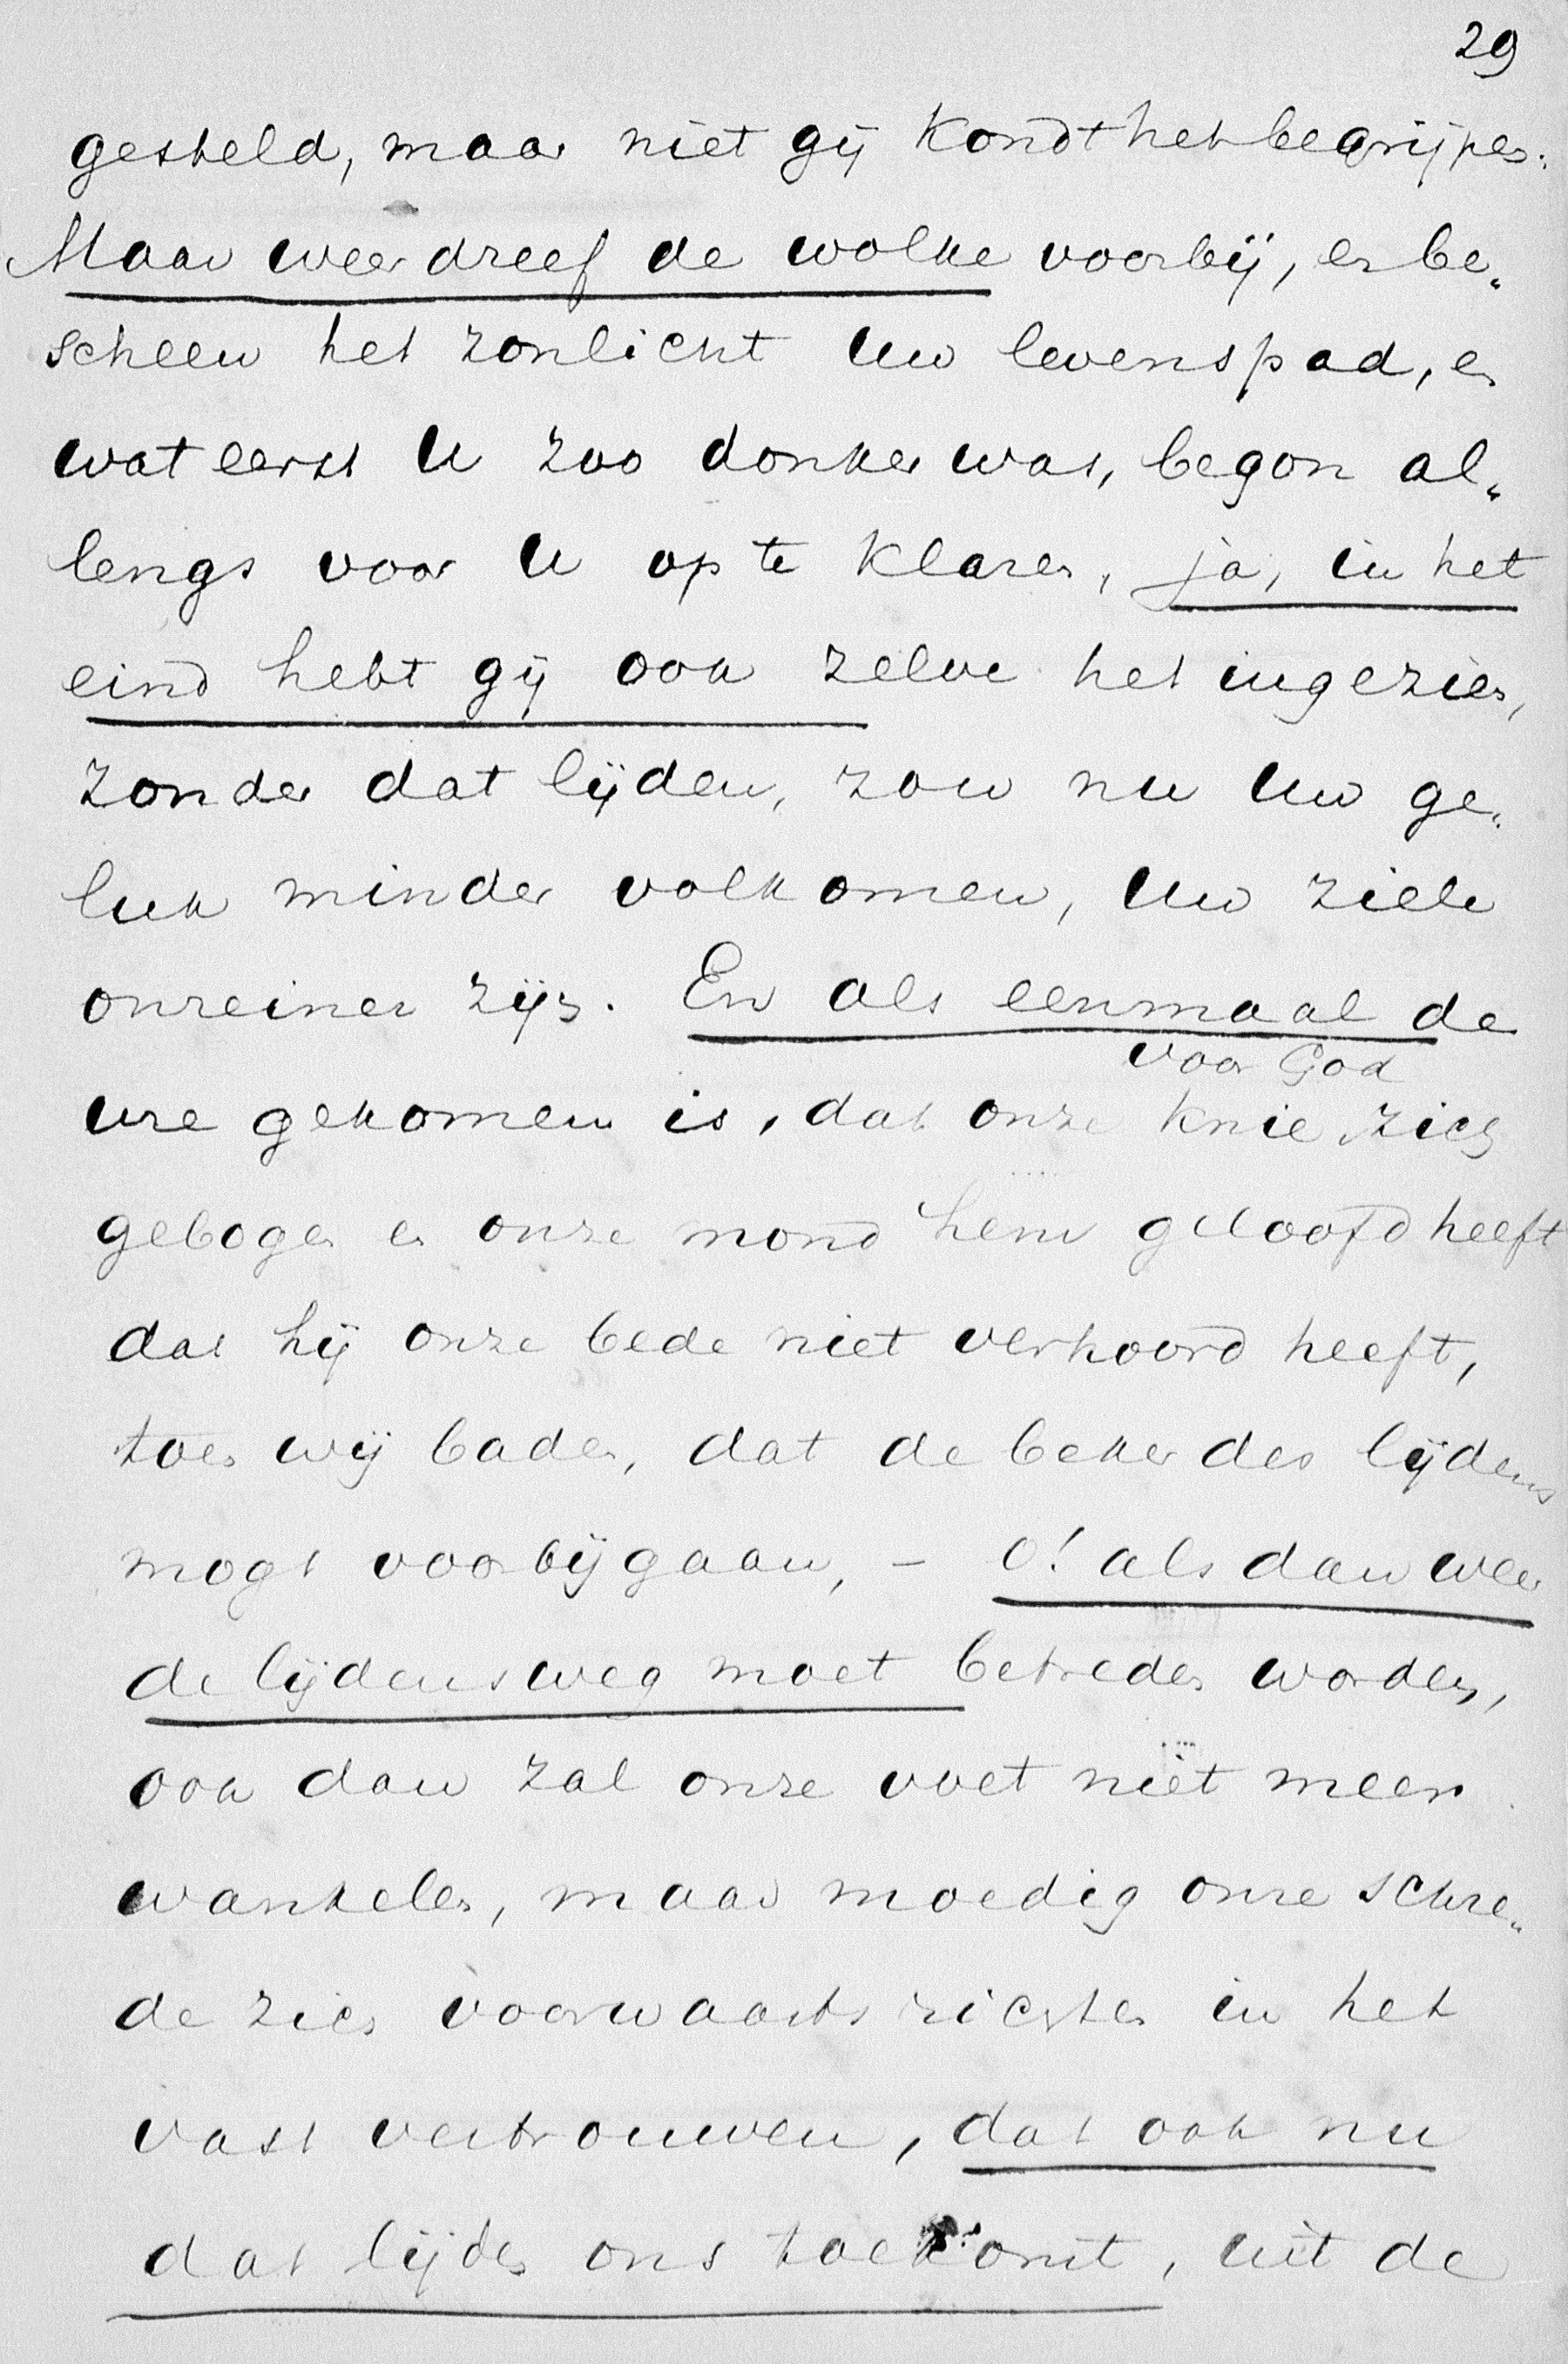 29
gesteld, maar niet gij kondt het begrijpen.
Maar weer dreef de wolke voorbij, en be„
scheen het zonlicht Uw levenspad, en
wat eerst U zoo donker was, begon al„
lengs voor U op te klaren, ja, in het
eind hebt gij ook zelve het ingezien,
zonder dat lijden, zou nu Uw ge„
luk minder volkomen, Uw ziele
onreiner zijn. En als eenmaal de
voor God
ure gekomen is, dat onze knie zich
gebogen en onze mond hem geloofd heeft
dat hij onze bede niet verhoord heeft,
toen wij baden, dat de beker des lijdens
mogt voorbijgaan, – o! als dan weer
de lijdensweg moet betreden worden,
ook dan zal onze voet niet meer
wankelen, maar moedig onze schre„
de zich voorwaarts richten in het
vast vertrouwen, dat ook nu
dat lijden ons toekomt, uit de